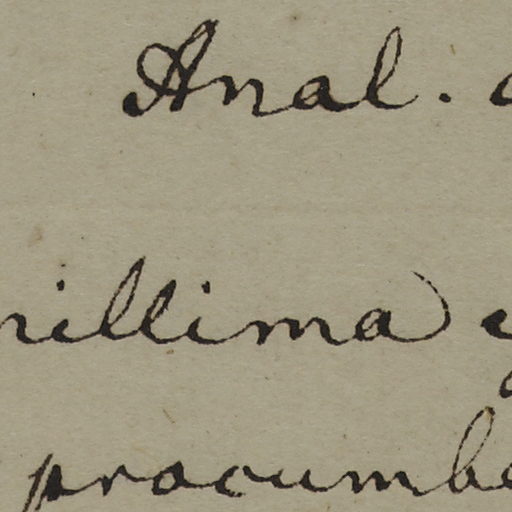 Anal.
illima
procumb